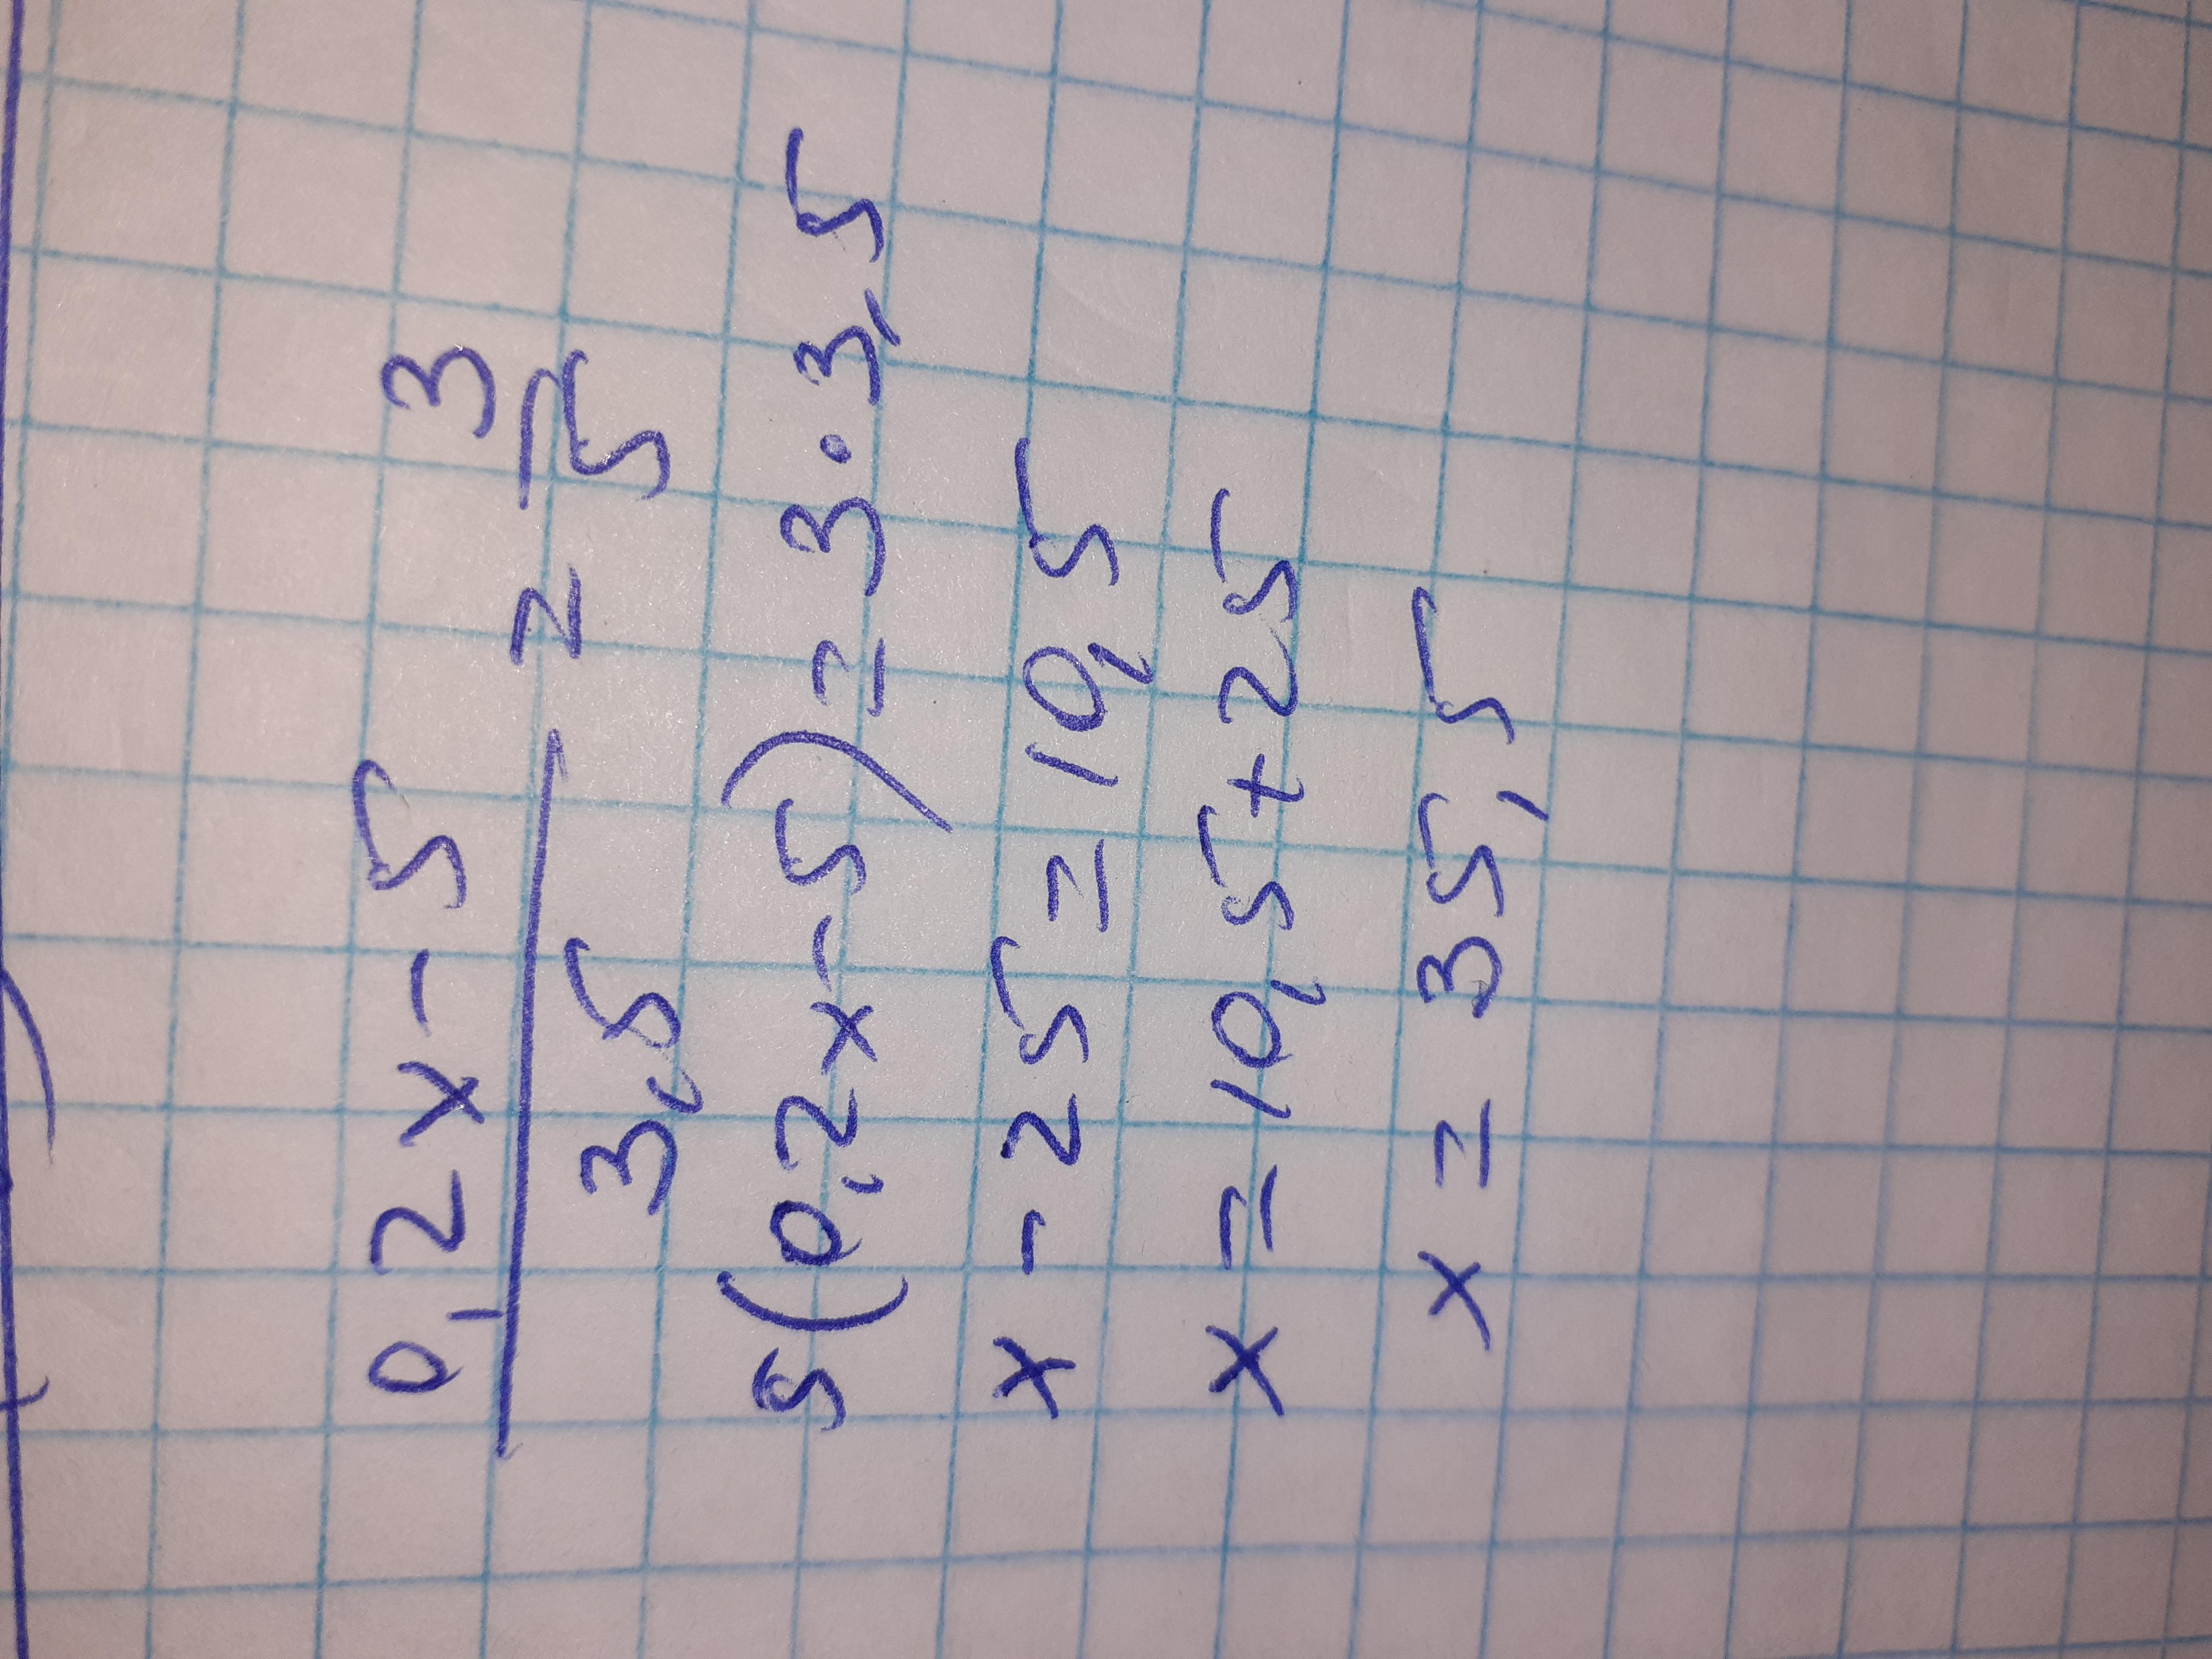 0,2x-5 = 3
3,5 5
5(0,2x-5)=3·3,5
x-25=10,5
x=10,5+25
x=35,5